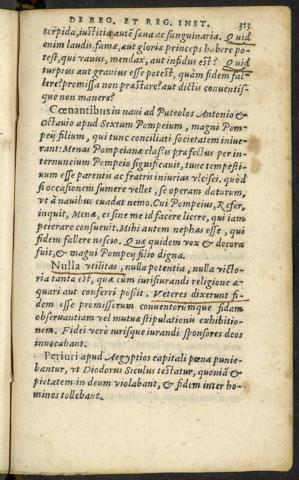 DE REG. ET REG. INST. 313
terpida, iustitiæ autē sæua ac sanguinaria. Quid
enim laudis, famæ, aut gloriæ princeps habere po-
test, qui vanus, mendax, aut infidus est? Quid
turpius aut grauius esse potest, quàm fidem fal-
lere? promissa non præstare? aut dictis conuentis-
que non manere?
Cœnantibus in naui ad Puteolos Antonio &
Octauio apud Sextum Pompeium, magni Pom-
peij filium, qui tunc conciliati societatem iniue-
rant: Menas Pompeianæ classis præfectus per in-
ternuncium Pompeio significauit, tunc tempesti-
uum esse parentis ac fratris iniurias vlcisci. quòd
si occasionem sumere vellet, se operam daturum,
vt à nauibus euadat nemo. Cui Pompeius, Refer,
inquit, Menæ, ei sine me id facere licere, qui iam
peierare consueuit. Mihi autem nephas esse, qui
fidem fallere nescio. Quæ quidem vox & decora
fuit, & magni Pompeij filio digna.
Nulla vtilitas, nulla potentia, nulla victo-
ria tanta est, quæ cùm iurisiurandi religione æ-
quari aut conferri possit. Veteres dixerunt fi-
dem esse promissorum conuentorúmque fidam
obseruantiam vel mutuæ stipulationis exhibitio-
nem. Fidei verò iurisque iurandi sponsores deos
inuocabant.
Periuri apud Aegyptios capitali pœna punie-
bantur, vt Diodorus Siculus testatur, quoniā &
pietatem in deum violabant, & fidem inter ho-
mines tollebant.